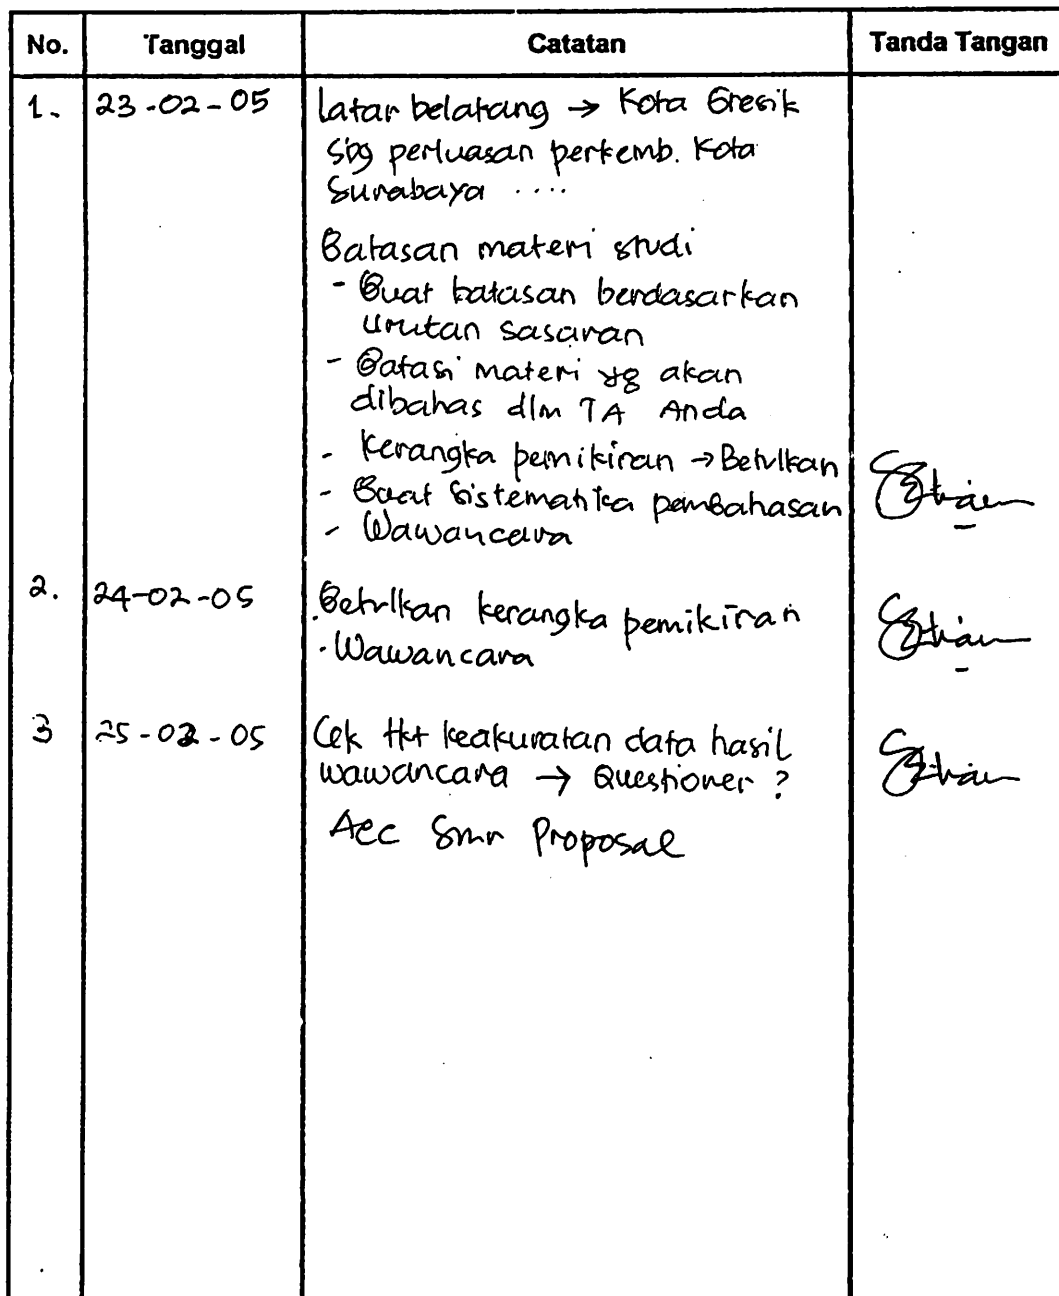 No. Tanggal Catatan Tanda Tangan
1. 23-02-05 Latar belakang → Kota Gresik
sbg perluasan perkemb. Kota
Surabaya ....
Batasan materi studi
- Buat batasan berdasarkan
urutan sasaran
- Batasi materi yg akan
dibahas dlm TA Anda
- Kerangka pemikiran → Betulkan
- Buat sistematika pembahasan
- Wawancara
2. 24-02-05 Betulkan kerangka pemikiran
- Wawancara
3 25-02-05 Cek tkt keakuratan data hasil
wawancara → Questioner ?
Acc Smr Proposal